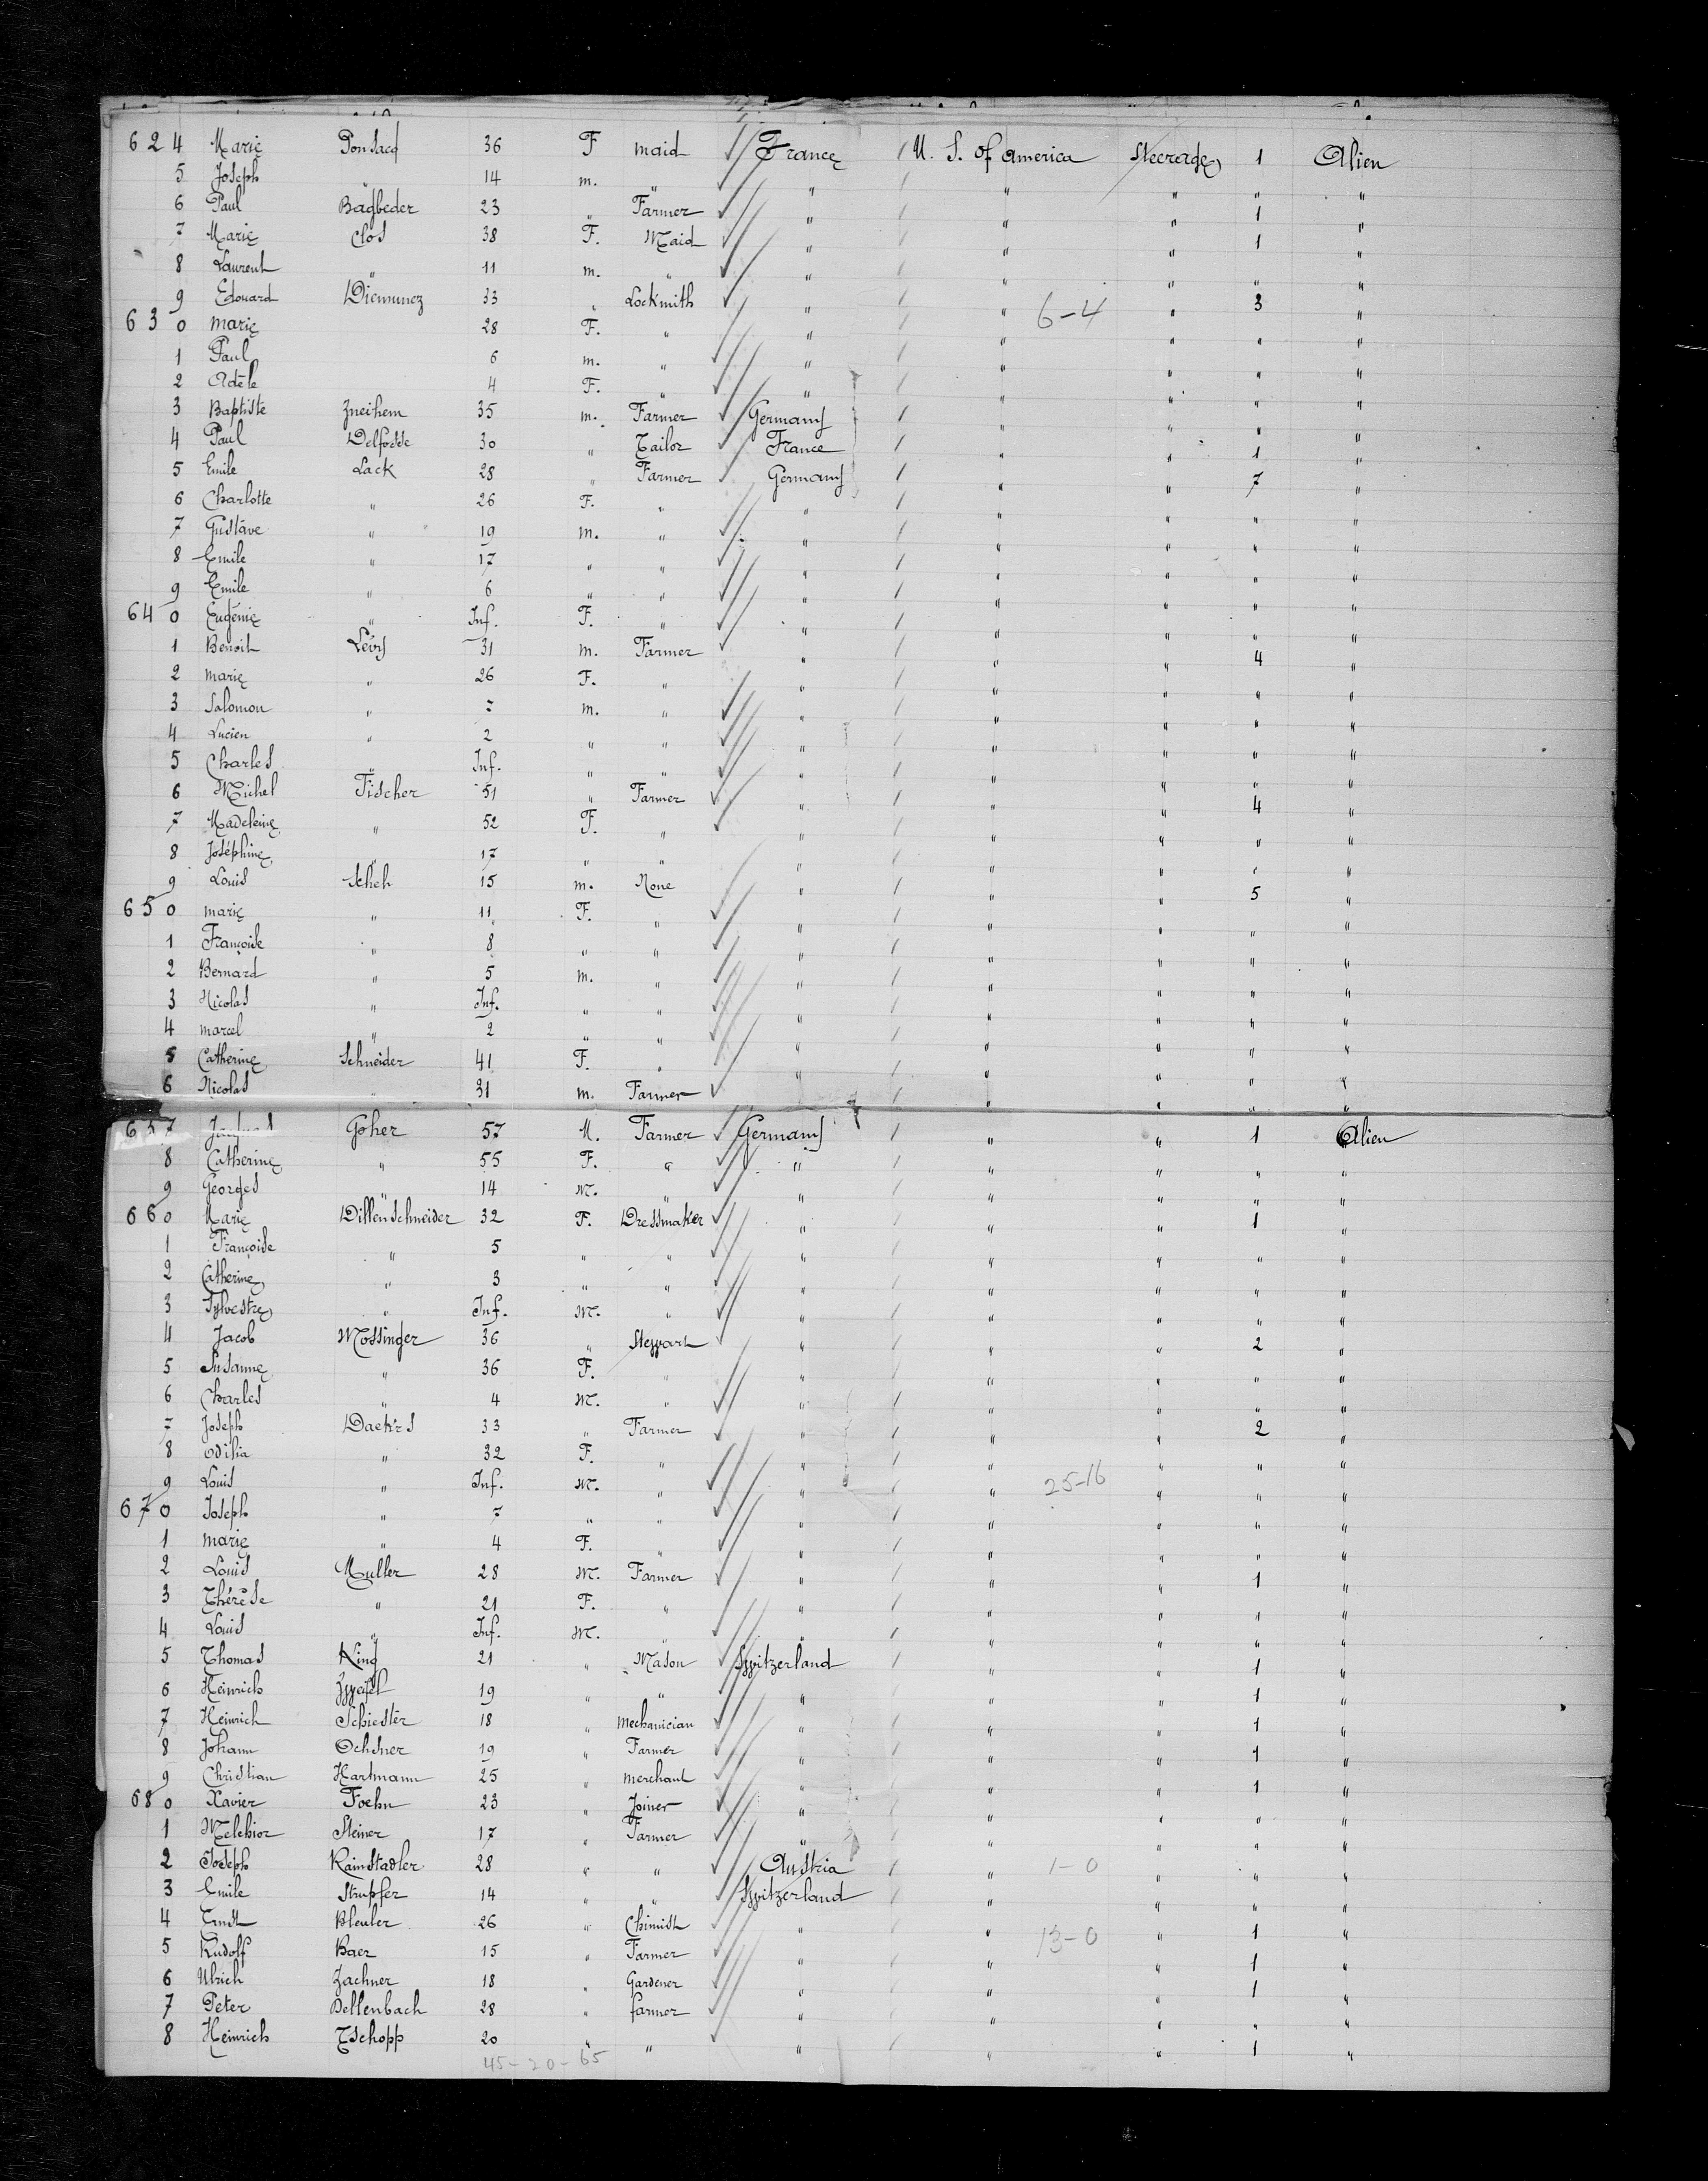 624 Marie Ponsacq 36 F maid France U. S. of america Steerage 1 Alien
5 Joseph " 14 m. " " " " " "
6 Paul Bagbeder 23 " Farmer " " " 1 "
7 Marie Clos 38 F. Maid " " " 1 "
8 Laurent " 11 m. " " " " " "
9 Edouard Diemunez 33 " Lockmith " " " 3 "
630 Marie 28 F. " " " " " "
1 Paul 6 m. " " " " " "
2 Adèle 4 F. " " " " " "
3 Baptiste Zneihem 35 m. Farmer Germany " " " "
4 Paul Delfosse 30 " Tailor France " " 1 "
5 Emile Lack 28 " Farmer Germany " " 7 "
6 Charlotte " 26 F. " " " " " "
7 Gustave " 19 m. " " " " " "
8 Emile " 17 " " " " " " "
9 Emile " 6 " " " " " " "
640 Eugénie " Inf. F. " " " " " "
1 Benoit Lévy 31 m. Farmer " " " 4 "
2 Marie " 26 F. " " " " " "
3 Salomon " 7 m. " " " " " "
4 Lucien " 2 " " " " " " "
5 Charles " Inf. " " " " " " "
6 Michel Fischer 51 " Farmer " " " 4 "
7 Madeleine " 52 F. " " " " " "
8 Joséphine " 17 " " " " " " "
9 Louis Scheh 15 m. None " " " 5 "
650 Marie " 11 F. " " " " " "
1 Françoise " 8 " " " " " " "
2 Bernard " 5 m. " " " " " "
3 Nicolas " Inf. " " " " " " "
4 Marcel " 2 " " " " " " "
5 Catherine Schneider 41 F. " " " " " "
6 Nicolas " 31 m. Farmer " " " "
657 Goher 57 M. Farmer Germany " " 1 Alien
8 Catherine " 55 F. " " " " " "
9 Georges " 14 M. " " " " " "
660 Marie Dillenschneider 32 F. Dressmaker " " " 1 "
1 Françoise " 5 " " " " " " "
2 Catherine " 3 " " " " " " "
3 Sylvestre " Inf. M. " " " " " "
4 Jacob Mossinger 36 " Stewart " " " 2 "
5 Susanne " 36 F. " " " " " "
6 Charles " 4 M. " " " " " "
7 Joseph Daek's 33 " Farmer " " " 2 "
8 Odilia " 32 F. " " " " " "
9 Louis " Inf. M. " " " 25-16 " " "
670 Joseph " 7 " " " " " " "
1 Marie " 4 F. " " " " " "
2 Louis Muller 28 M. Farmer " " " 1 "
3 Thérèse " 21 F. " " " " " "
4 Louis " Inf. M. " " " " " "
5 Thomas King 21 " Mason Switzerland " " 1 "
6 Heinrich Zweifel 19 " " " " " 1 "
7 Heinrich Schiester 18 " Mechanician " " " 1 "
8 Johann Ochsner 19 " Farmer " " " 1 "
9 Christian Hartmann 25 " merchant " " " 1 "
680 Xavier Foehn 23 " Joiner " " " " "
1 Melchior Steiner 17 " Farmer " " " " "
2 Joseph Rainstadler 28 " " Austria " 1-0 " " "
3 Emile Strupfer 14 " " Switzerland " " " "
4 Ernst Bleuler 26 " Chimist " " " 1 "
5 Rudolf Baer 15 " Farmer " " 13-0 " 1 "
6 Ulrich Zachner 18 " Gardener " " " 1 "
7 Peter Dellenbach 28 " farmer " " " " "
8 Heinrich Tschopp 20 " " " " " 1 "
6-4
45-20-65